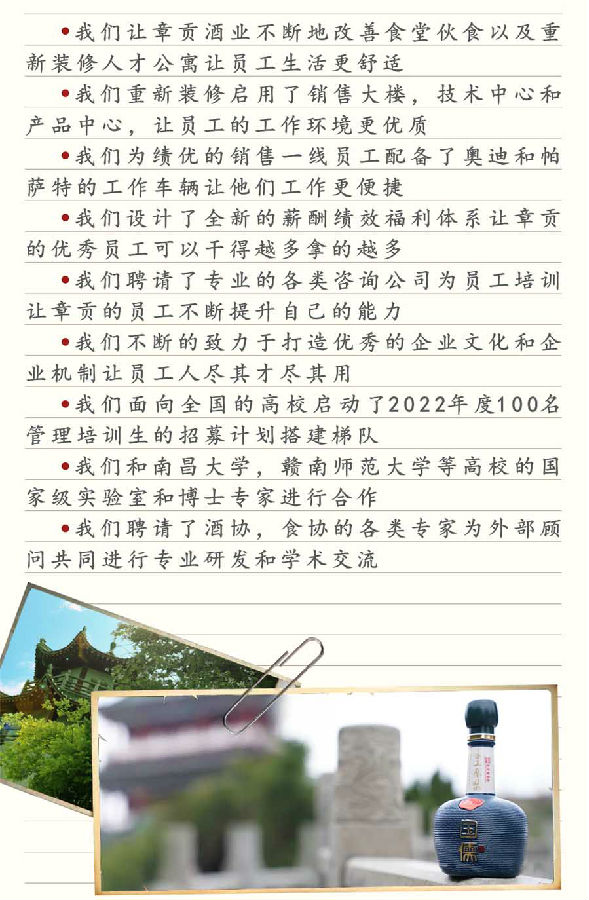 •我们让章贡酒业不断地改善食堂伙食以及重
新装修人才公寓让员工生活更舒适
•我们重新装修启用了销售大楼，技术中心和
产品中心，让员工的工作环境更优质
•我们为绩优的销售一线员工配备了奥迪和帕
萨特的工作车辆让他们工作更便捷
•我们设计了全新的薪酬绩效福利体系让章贡
的优秀员工可以干得越多拿的越多
•我们聘请了专业的各类咨询公司为员工培训
让章贡的员工不断提升自己的能力
•我们不断的致力于打造优秀的企业文化和企
业机制让员工人尽其才尽其用
•我们面向全国的高校启动了2022年度100名
管理培训生的招募计划搭建梯队
•我们和南昌大学，赣南师范大学等高校的国
家级实验室和博士专家进行合作
•我们聘请了酒协，食协的各类专家为外部顾
问共同进行专业研发和学术交流